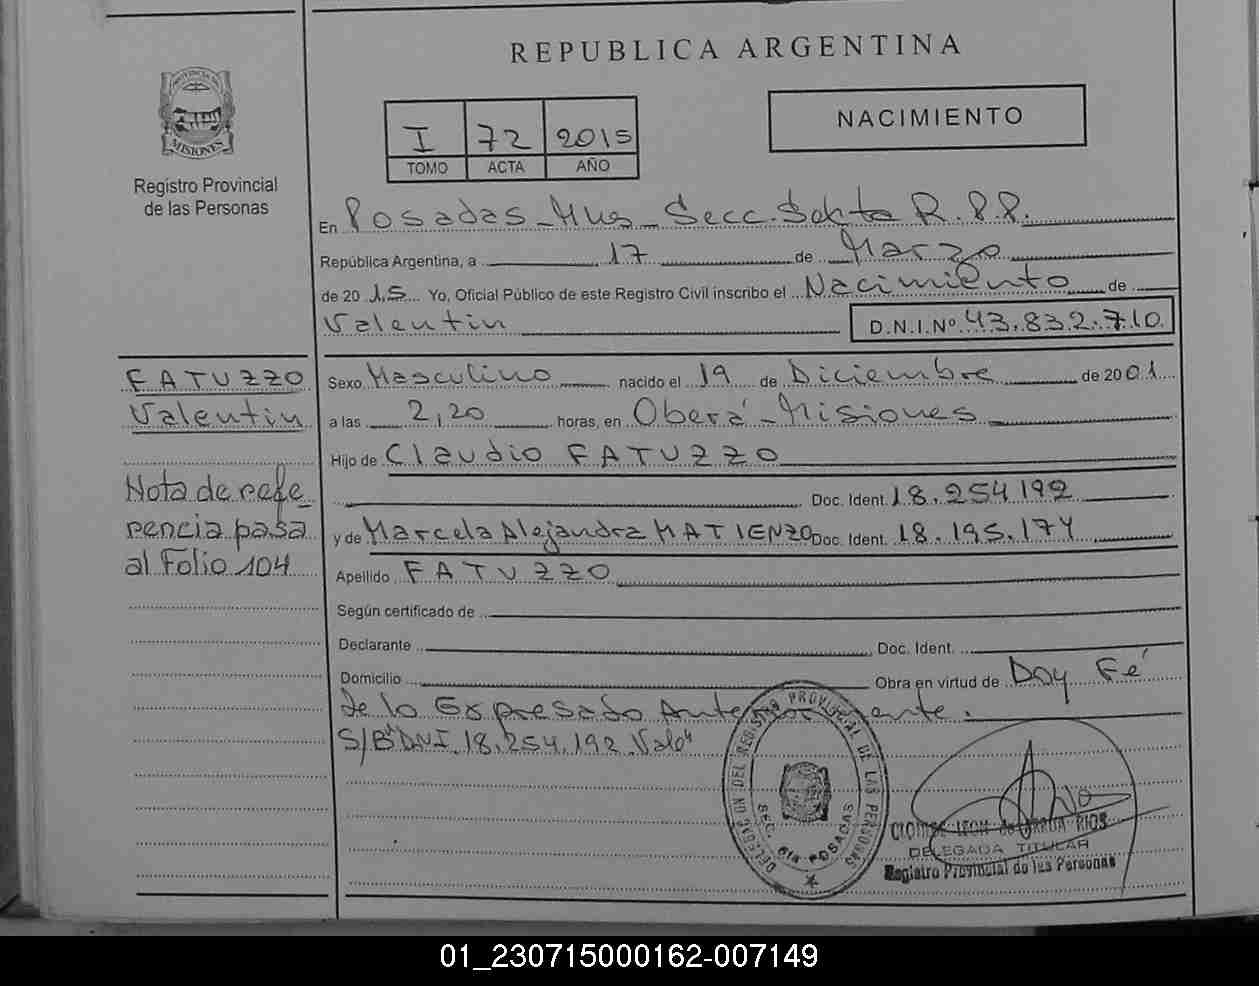 REPUBLICA ARGENTINA
PROVINCIA DE
MISIONES
Registro Provincial
de las Personas
I 72 2015
TOMO ACTA AÑO
NACIMIENTO
En Posadas - Mnes - Secc. Sexta R.P.P.
República Argentina, a 17 de Marzo
de 2015 Yo, Oficial Público de este Registro Civil inscribo el Nacimiento de
Valentin D.N.I.Nº 43.832.710
FATUZZO
Valentin
Nota de refe_
rencia pasa
al Folio 104
Sexo Masculino nacido el 19 de Diciembre de 2001
a las 2,20 horas, en Oberá - Misiones
Hijo de Claudio FATUZZO
Doc. Ident. 18.254.192
y de Marcela Alejandra MATIENZO Doc. Ident. 18.195.174
Apellido FATUZZO
Según certificado de
Declarante Doc. Ident.
Domicilio Obra en virtud de Doy Fé
de lo Expresado Anteriormente.
S/B"DNI. 18.254.192 Vale"
DELEGACION DEL REGISTRO PROVINCIAL DE LAS PERSONAS
SEC. 6ta POSADAS
LEON de RIOS
DELEGADA TITULAR
Registro Provincial de las Personas
01_230715000162-007149